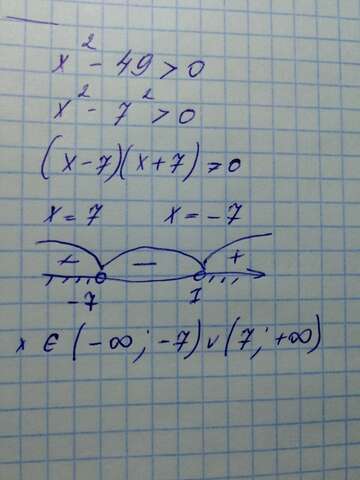 x² - 49 > 0
x² - 7² > 0
(x-7)(x+7) > 0
x = 7 x = -7
+ - +
-7 7
x ∈ (-∞; -7) ∪ (7; +∞)